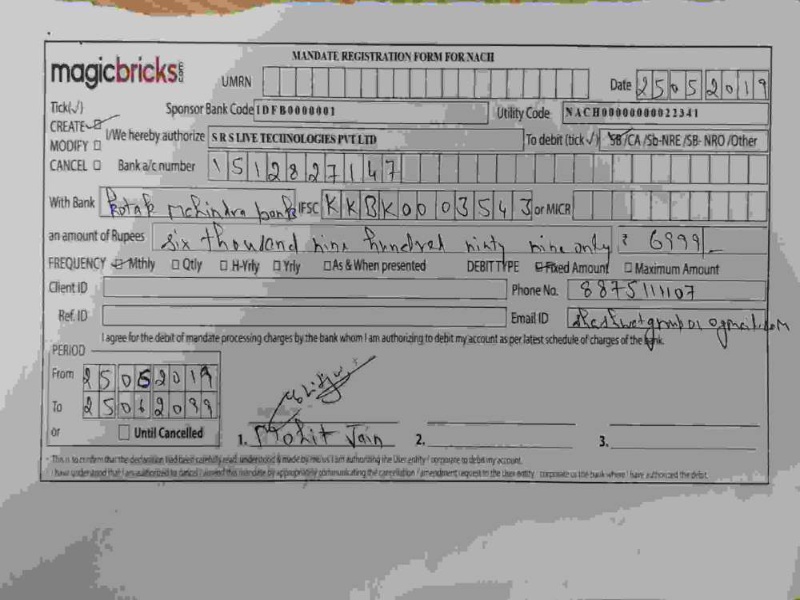 MANDATE REGISTRATION FORM FOR NACH
magicbricks.com
UMRN
Date 25052019
Tick(√) Sponsor Bank Code IDFB0000001 Utility Code NACH00000000022341
CREATE
I/We hereby authorize SRS LIVE TECHNOLOGIES PVT LTD To debit (tick √) SB/CA/Sb-NRE/SB-NRO/Other
MODIFY
CANCEL Bank a/c number 1512827147
With Bank Kotak Mahindra bank IFSC KKBK0003543 or MICR
an amount of Rupees six thousand nine hundred ninty nine only ₹ 6999/-
FREQUENCY Mthly Qtly H-Yrly Yrly As & When presented DEBIT TYPE Fixed Amount Maximum Amount
Client ID Phone No. 8875111107
Ref. ID Email ID
I agree for the debit of mandate processing charges by the bank whom I am authorizing to debit my account as per latest schedule of charges of the bank.
PERIOD
From 25052019
To
or Until Cancelled 1. Mohit Jain 2. 3.
- This is to confirm that the declaration had been carefully read, understood & made by me/us. I am authorizing the User entity / corporate to debit my account.
I have understood that I am authorized to cancel / amend this mandate by appropriately communicating the cancellation / amendment request to the User entity / corporate or the bank where I have authorized the debit.